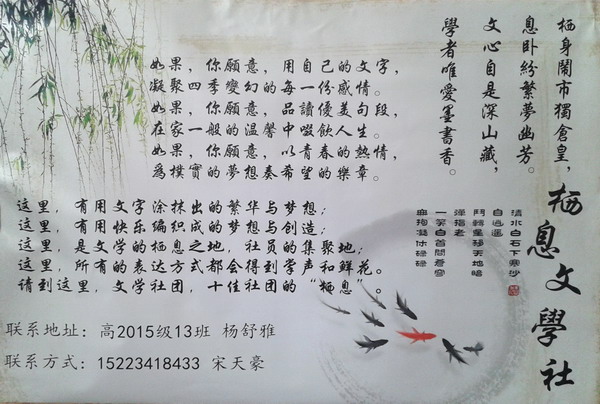 栖身鬧市獨倉皇，
息卧紛繁夢幽芳。
文心自是深山藏，
學者唯愛墨書香。
栖息文學社
如果，你願意，用自己的文字，
凝聚四季變幻的每一份感情。
如果，你願意，品讀優美句段，
在家一般的温馨中啜飲人生。
如果，你願意，以青春的熱情，
爲樸實的夢想奏希望的樂章。
清水白石下寒沙
自逍遥
斗轉星移天地暗
彈指老
一笑白首問蒼穹
这里，有用文字涂抹出的繁华与梦想；
这里，有用快乐编织成的梦想与创造；
这里，是文学的栖息之地，社员的集聚地；
这里，所有的表达方式都会得到掌声和鲜花。
请到这里，文学社团，十佳社团的“栖息”。
联系地址：高2015级13班 杨舒雅
联系方式：15223418433 宋天豪